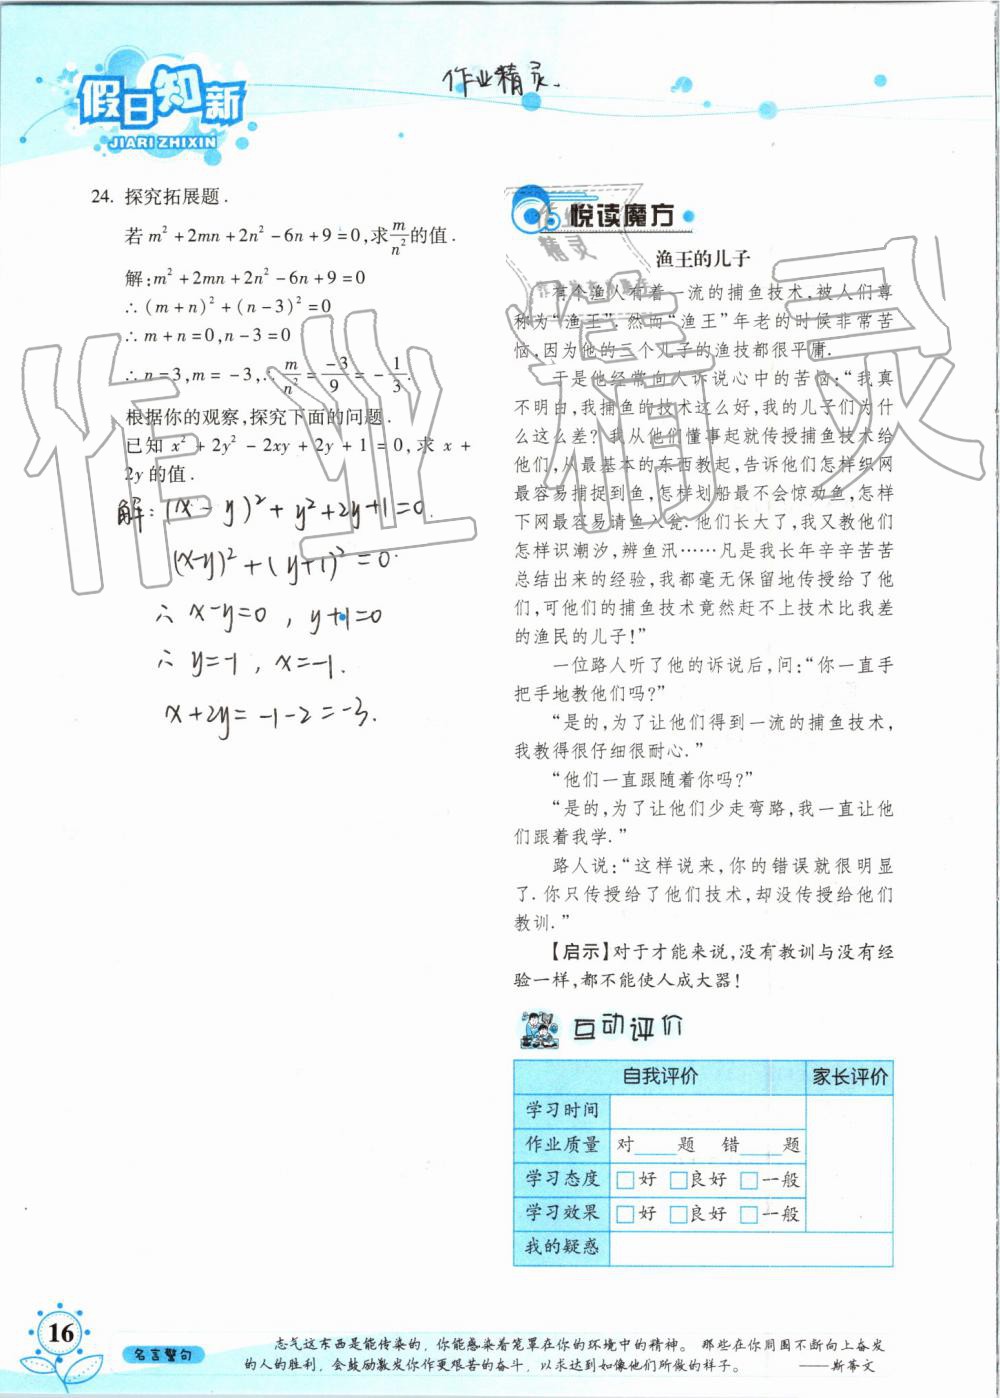 作业精灵.
假日知新
JIARI ZHIXIN
24. 探究拓展题.
若 m²+2mn+2n²-6n+9=0,求m/n²的值.
解:m²+2mn+2n²-6n+9=0
∴(m+n)²+(n-3)²=0
∴m+n=0,n-3=0
∴n=3,m=-3,∴m/n²=-3/9=-1/3.
根据你的观察,探究下面的问题.
已知 x²+2y²-2xy+2y+1=0,求 x+
2y的值.
解:(x-y)²+y²+2y+1=0.
(x-y)²+(y+1)²=0.
∴ x-y=0, y+1=0
∴ y=-1, x=-1.
x+2y=-1-2=-3.
悦读魔方
渔王的儿子
有个渔人有着一流的捕鱼技术,被人们尊
称为“渔王”.然而“渔王”年老的时候非常苦
恼,因为他的三个儿子的渔技都很平庸.
于是他经常向人诉说心中的苦恼:“我真
不明白,我捕鱼的技术这么好,我的儿子们为什
么这么差?我从他们懂事起就传授捕鱼技术给
他们,从最基本的东西教起,告诉他们怎样织网
最容易捕捉到鱼,怎样划船最不会惊动鱼,怎样
下网最容易请鱼入瓮.他们长大了,我又教他们
怎样识潮汐,辨鱼汛……凡是我长年辛辛苦苦
总结出来的经验,我都毫无保留地传授给了他
们,可他们的捕鱼技术竟然赶不上技术比我差
的渔民的儿子!”
一位路人听了他的诉说后,问:“你一直手
把手地教他们吗?”
“是的,为了让他们得到一流的捕鱼技术,
我教得很仔细很耐心.”
“他们一直跟随着你吗?”
“是的,为了让他们少走弯路,我一直让他
们跟着我学.”
路人说:“这样说来,你的错误就很明显
了.你只传授给了他们技术,却没传授给他们
教训.”
【启示】对于才能来说,没有教训与没有经
验一样,都不能使人成大器!
互动评价
自我评价 家长评价
学习时间
作业质量 对____题 错____题
学习态度 □好 □良好 □一般
学习效果 □好 □良好 □一般
我的疑惑
作业精灵
16
名言警句
志气这东西是能传染的,你能感染着笼罩在你的环境中的精神。那些在你周围不断向上奋发
的人的胜利,会鼓励激发你作更艰苦的奋斗,以求达到如像他们所做的样子。 ——斯蒂文